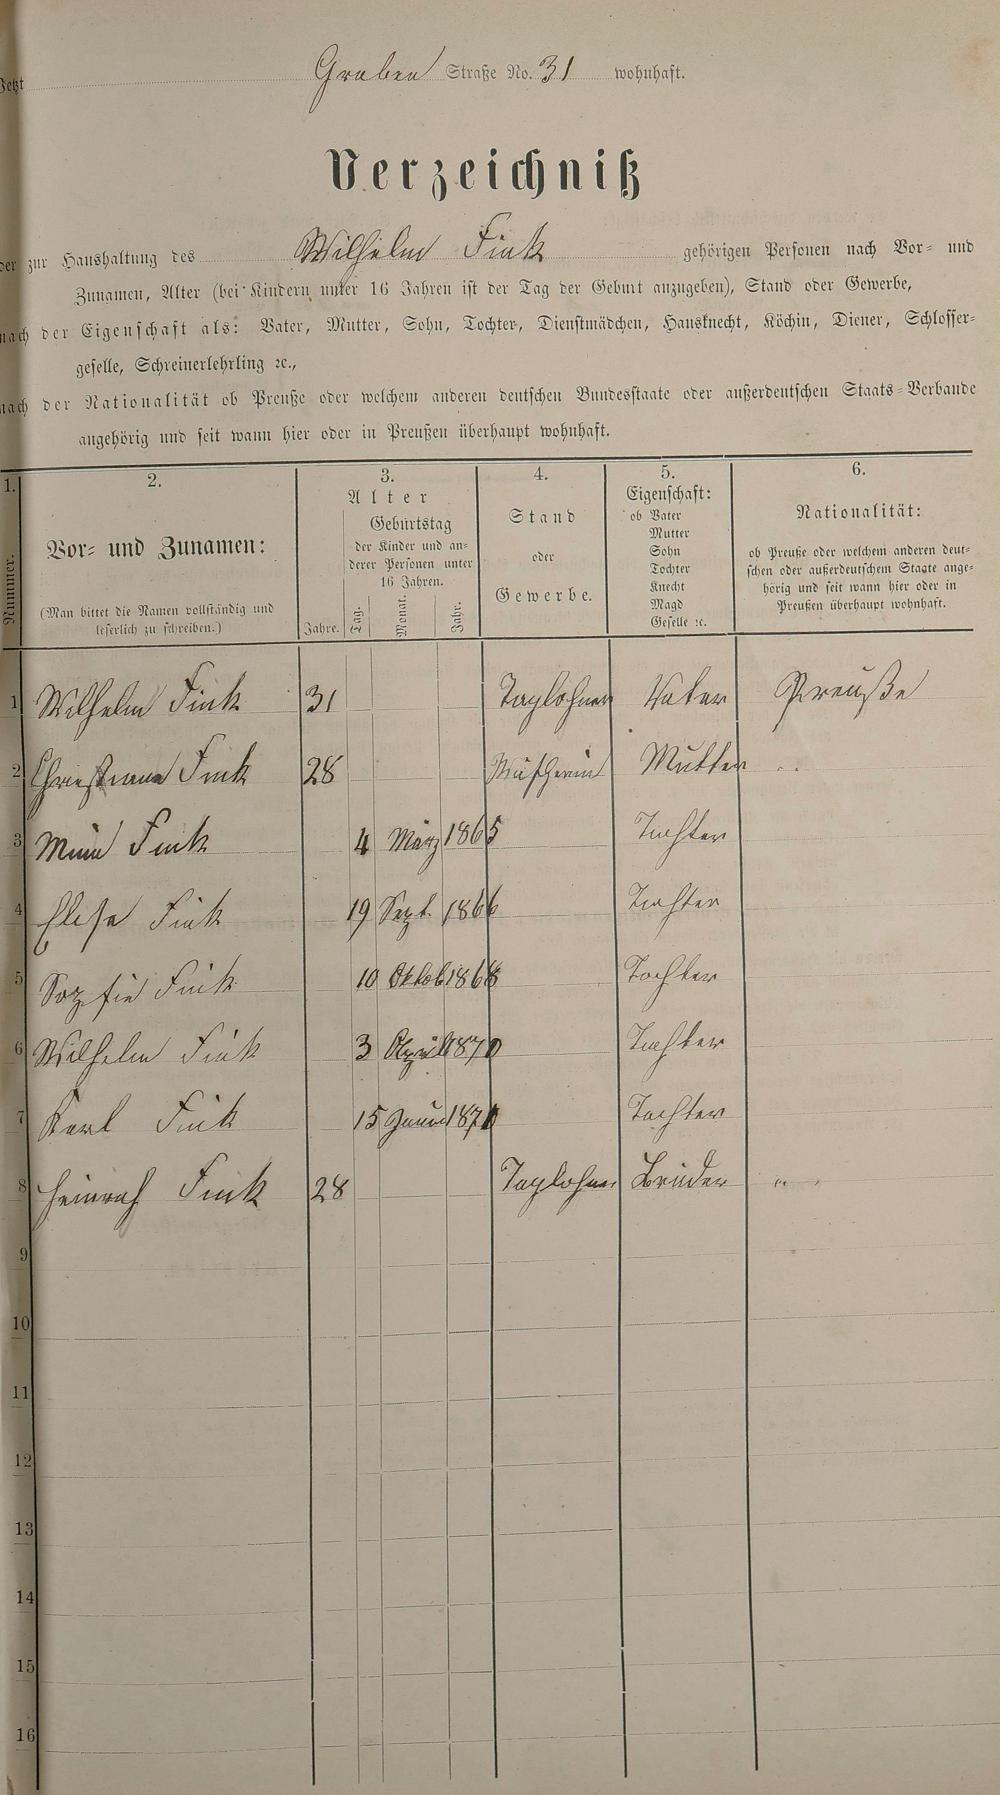 Jetzt Graben Straße No. 31 wohnhaft.
Verzeichniß
der zur Haushaltung des Wilhelm Fink gehörigen Personen nach Vor- und
Zunamen, Alter (bei Kindern unter 16 Jahren ist der Tag der Geburt anzugeben), Stand oder Gewerbe,
nach der Eigenschaft als: Vater, Mutter, Sohn, Tochter, Dienstmädchen, Hausknecht, Köchin, Diener, Schlosser-
geselle, Schreinerlehrling ꝛc.,
nach der Nationalität ob Preuße oder welchem anderen deutschen Bundesstaate oder außerdeutschen Staats-Verbande
angehörig und seit wann hier oder in Preußen überhaupt wohnhaft.
1. 2. 3. 4. 5. 6.
Nummer.
Vor- und Zunamen:
(Man bittet die Namen vollständig und
leserlich zu schreiben.)
Alter
Geburtstag
der Kinder und an-
derer Personen unter
16 Jahren.
Jahre. Tag. Monat. Jahr.
Stand
oder
Gewerbe.
Eigenschaft:
ob Vater
Mutter
Sohn
Tochter
Knecht
Magd
Geselle ꝛc.
Nationalität:
ob Preuße oder welchem anderen deut-
schen oder außerdeutschem Staate ange-
hörig und seit wann hier oder in
Preußen überhaupt wohnhaft.
1 Wilhelm Fink 31 Taglöhner Vater Preuße
2 Fink 28 Wäscherin Mutter "
3 Fink 4 März 1865 Tochter
4 Elise Fink 19 Sept. 1866 Tochter
5 Sopfie Fink 10 Oktob 1868 Tochter
6 Wilhelm Fink 3 April 1870 Tochter
7 Karl Fink 15 187 Tochter
8 Heinrich Fink 28 Taglohner Bruder "
9
10
11
12
13
14
15
16